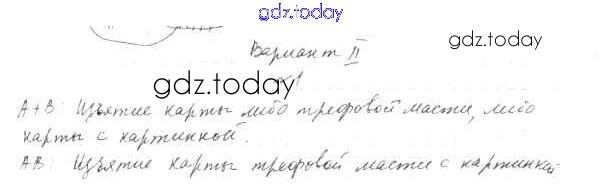 gdz.today
Вариант II
gdz.today
№1
gdz.today
A+B: Изъятие карты либо трефовой масти, либо
карты с картинкой.
AB: Изъятие карты трефовой масти с картинкой